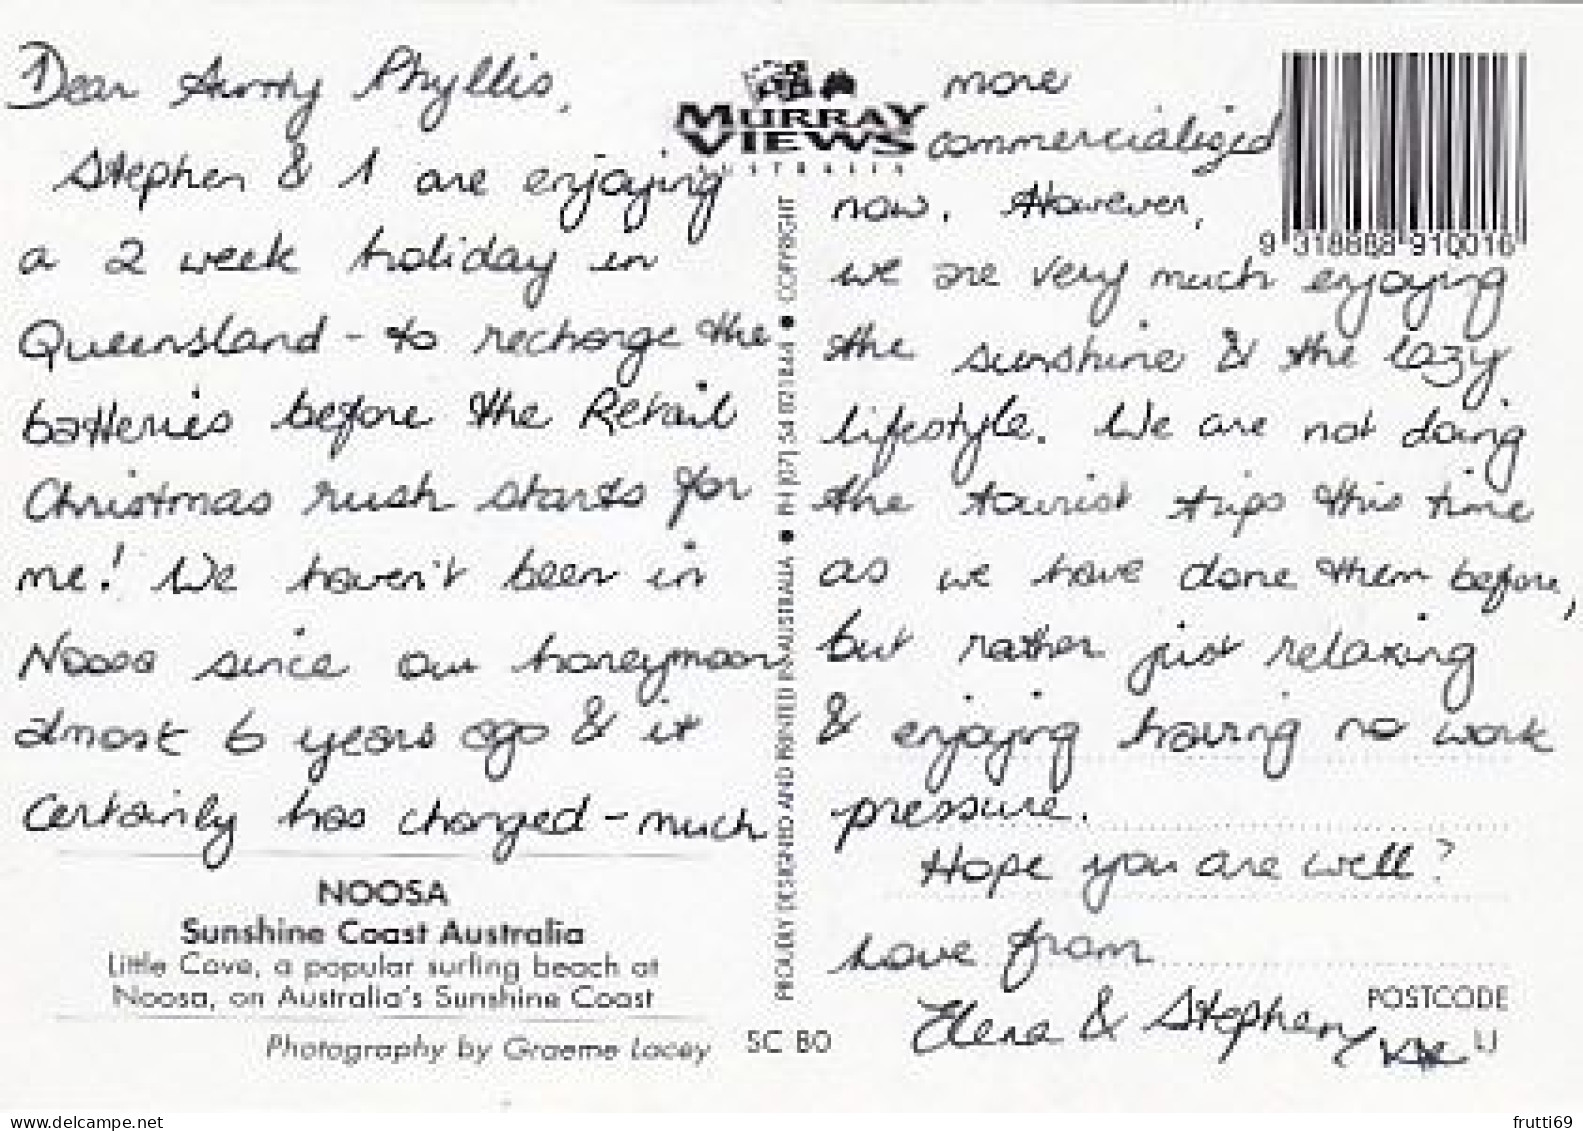 Dear Aunty Phyllis,
Stephen & I are enjoying
a 2 week holiday in
Queensland - to recharge the
batteries before the Retail
Christmas rush starts for
me! We haven't been in
Noosa since our honeymoon
almost 6 years ago & it
certainly has changed - much
NOOSA
Sunshine Coast Australia
Little Cove, a popular surfing beach at
Noosa, on Australia's Sunshine Coast
Photography by Graeme Lacey
MURRAY
VIEWS
AUSTRALIA
PROUDLY DESIGNED AND PRINTED IN AUSTRALIA ● PH (07) 54 821844 ● COPYRIGHT
SC 80
more
commercialized
now. However,
we are very much enjoying
the sunshine & the lazy
lifestyle. We are not doing
the tourist trips this time
as we have done them before,
but rather just relaxing
& enjoying having no work
pressure.
Hope you are well?
Love from
Elena & Stephen
9 318888 910016
POSTCODE
frutti69
www.delcampe.net